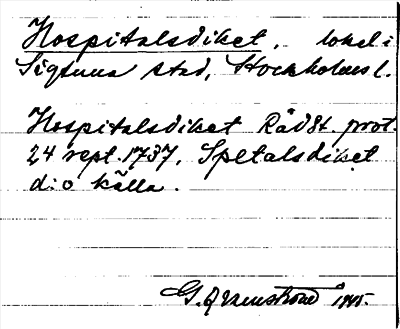 Hospitalsdiket, lokal i
Sigtuna stad, Stockholms l.
Hospitalsdiket Rådst. prot.
24 sept. 1737, Spetalsdiket
d:o källa.
G.